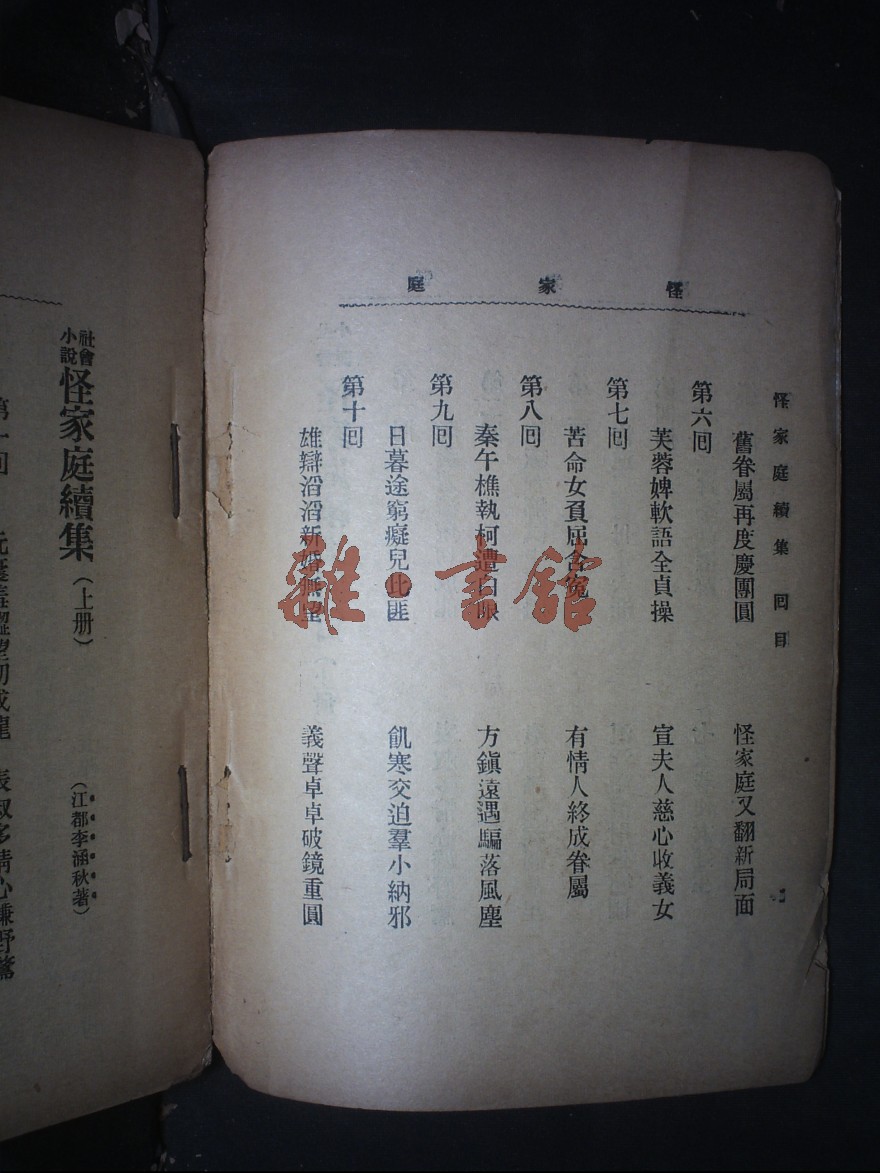 怪家庭
怪家庭續集 回目
舊眷屬再度慶團圓 怪家庭又翻新局面
第六回
芙蓉婢軟語全貞操 宣夫人慈心收義女
第七回
苦命女負屈含冤 有情人終成眷屬
第八回
秦午樵執柯遭白眼 方鎭遠遇騙落風塵
第九回
日暮途窮癡兒比匪 飢寒交迫羣小納邪
第十回
雄辯滔滔新婚無望 義聲卓卓破鏡重圓
社會小說 怪家庭續集(上册)
(江都李涵秋著)
第一回
雜·書館